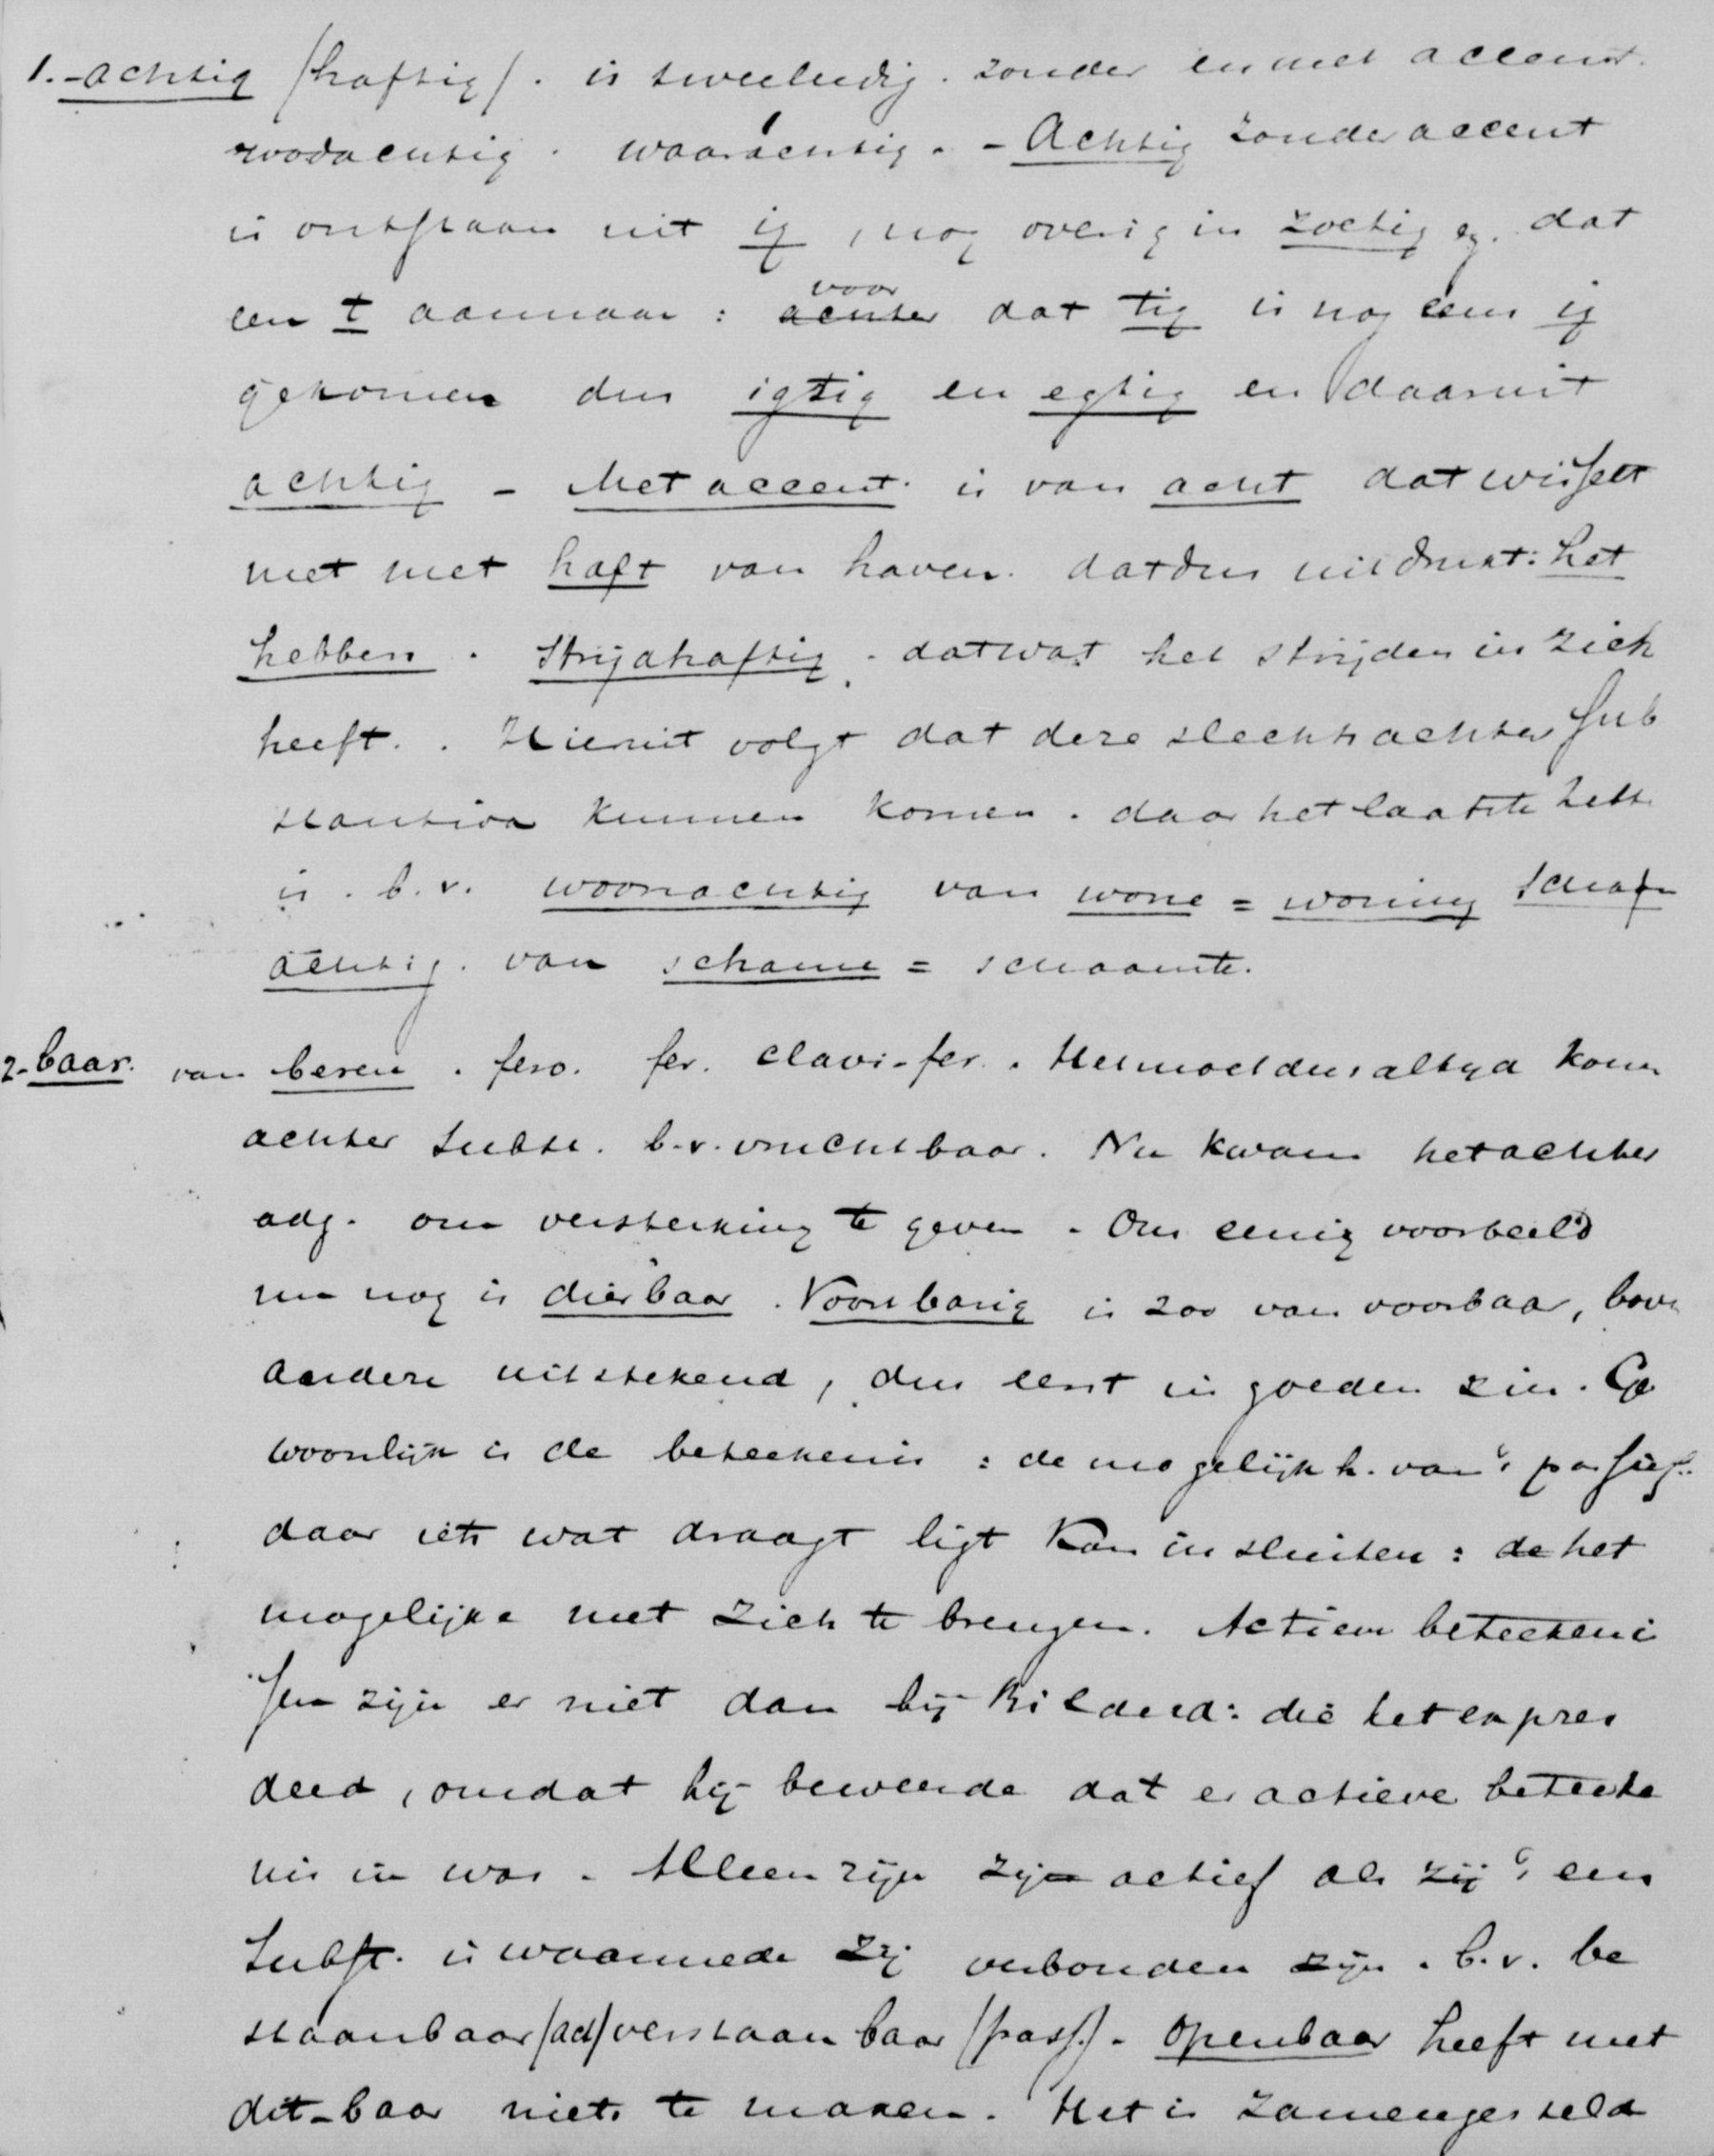 1. -achtig (haftig). is tweeledig. zonder en met accent.
roodachtig. waaráchtig. - Achtig zonder accent
is ontstaan uit ig, nog overig in zoetig eg. dat
een t aannam: achter voor dat tig is nog eens ig
gekomen dus igtig en egtig en daaruit
achtig - Met accent. is van acht dat wisselt
met met haft van haven. dat dus uitdrukt: het
hebben. Strijdhaftig. dat wat het strijden in zich
heeft. . Hieruit volgt dat deze slechts achter sub
stantiva kunnen komen. daar het laatste zelfst.
is. b.v. woonachtig van wone = woning
achtig. van schame = schaamte.
2-baar. van beren. fero. fer. clavi-fer. Het moet dus altyd kom
achter subst. b.v. vruchtbaar. Nu kwam het achter
adj. om versterking te geven. Ons eenig voorbeeld
nu nog is dierbaar. Voorbarig is zoo van voorbaar, bove
andere uitstekend, dus eerst in goeden zin. Ge
woonlijk is de beteekenis: de mogelijkh. van 't passief.
daar iets wat draagt ligt kan insluiten: de het
mogelijke met zich te brengen. Actieve beteekeni
ssen zijn er niet dan bij Bilderd: die het expres
deed, omdat hij beweerde dat er actieve beteeke
nis in was. Alleen zijn zijn actief als zij 't een
Subst. is waarmede zij verbonden zijn. b.v. be
staanbaar (act) verstaanbaar (pass.). Openbaar heeft met
dit -baar niets te maken. Het is zamengesteld